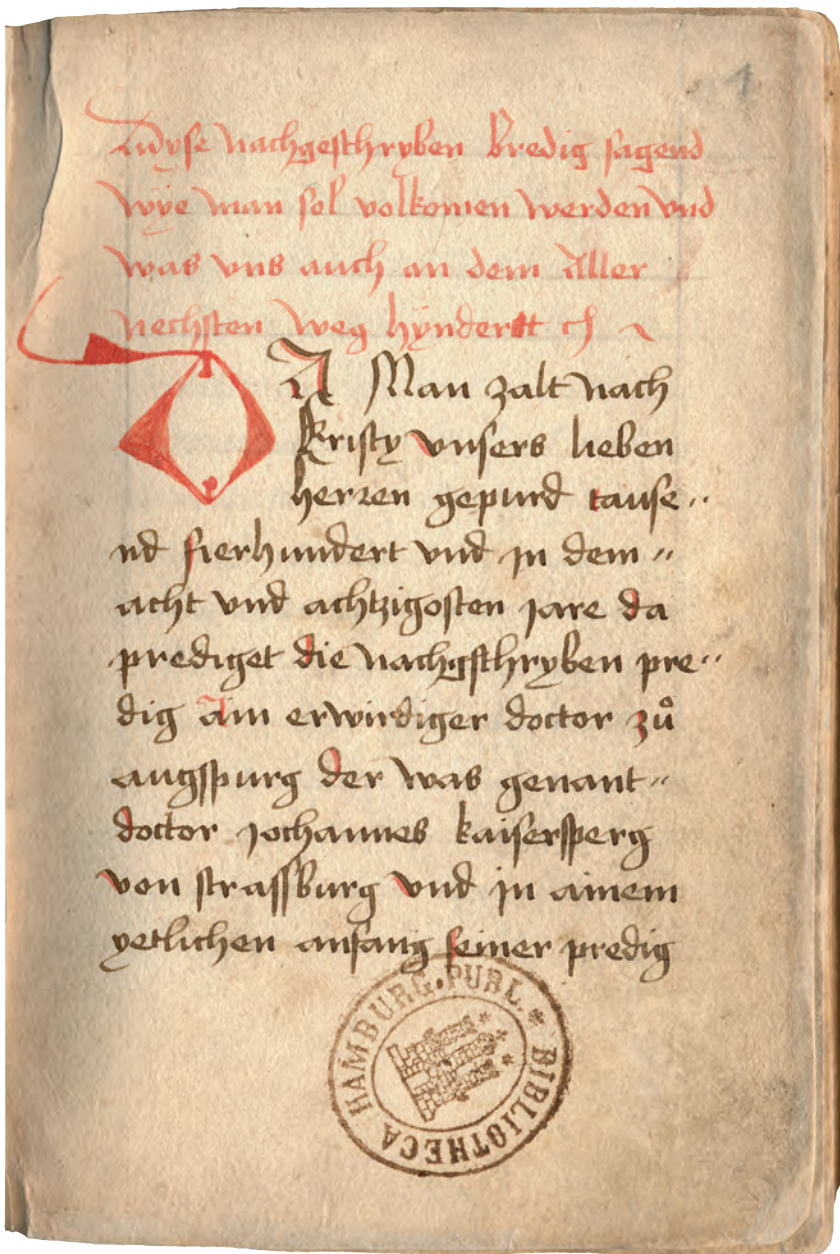 1
Dyse nachgeschryben bredig sagend
wye man sol volkomen werden vnd
was vns auch an dem Aller
nechsten weg hyndertt
DA Man zalt nach
kristy vnsers lieben
herren gepurd tause„
nd fierhundert vnd jn dem „
acht vnd achtzigosten jare da
prediget die nachgschryben pre„
dig Ain erwirdiger doctor zů
augspurg der was genant„
doctor johannes kaisersperg
von strassburg vnd jn ainem
yetlichen anfang seiner predig
BIBLIOTHECA HAMBURG. PUBL. *